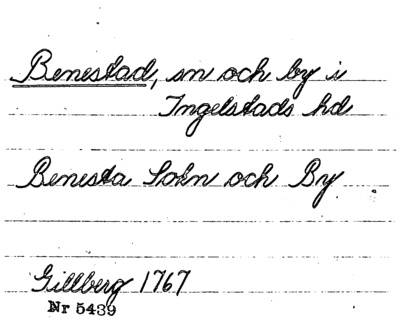 Benestad, sn och by i
Ingelstads hd
Benesta Sokn och By
Gillberg 1767
Nr 5439